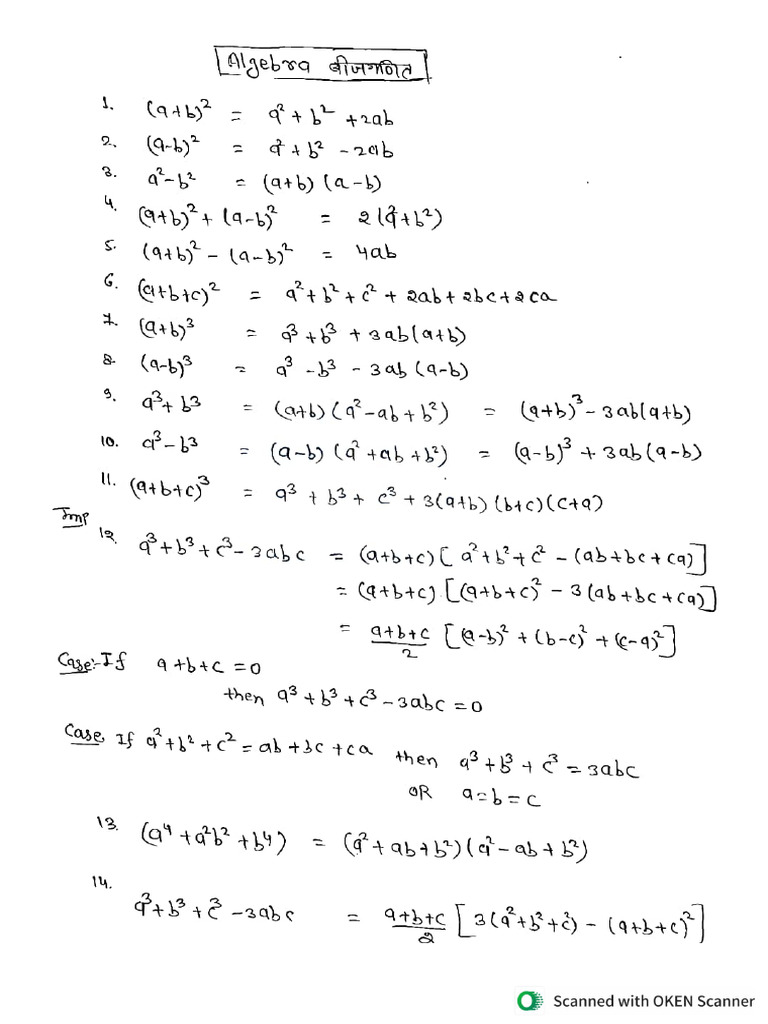 Algebra बीजगणित
1. (a+b)² = a² + b² + 2ab
2. (a-b)² = a² + b² - 2ab
3. a² - b² = (a+b) (a-b)
4. (a+b)² + (a-b)² = 2(a² + b²)
5. (a+b)² - (a-b)² = 4ab
6. (a+b+c)² = a² + b² + c² + 2ab + 2bc + 2ca
7. (a+b)³ = a³ + b³ + 3ab(a+b)
8. (a-b)³ = a³ - b³ - 3ab (a-b)
9. a³ + b³ = (a+b) (a² - ab + b²) = (a+b)³ - 3ab(a+b)
10. a³ - b³ = (a-b) (a² + ab + b²) = (a-b)³ + 3ab (a-b)
11. (a+b+c)³ = a³ + b³ + c³ + 3(a+b) (b+c) (c+a)
Imp
12. a³ + b³ + c³ - 3abc = (a+b+c) [a² + b² + c² - (ab+bc+ca)]
= (a+b+c) [(a+b+c)² - 3(ab+bc+ca)]
= (a+b+c)/2 [(a-b)² + (b-c)² + (c-a)²]
Case:- If a+b+c = 0
then a³ + b³ + c³ - 3abc = 0
Case If a² + b² + c² = ab + bc + ca then a³ + b³ + c³ = 3abc
OR a = b = c
13. (a⁴ + a²b² + b⁴) = (a² + ab + b²) (a² - ab + b²)
14. a³ + b³ + c³ - 3abc = (a+b+c)/2 [3(a² + b² + c²) - (a+b+c)²]
Scanned with OKEN Scanner